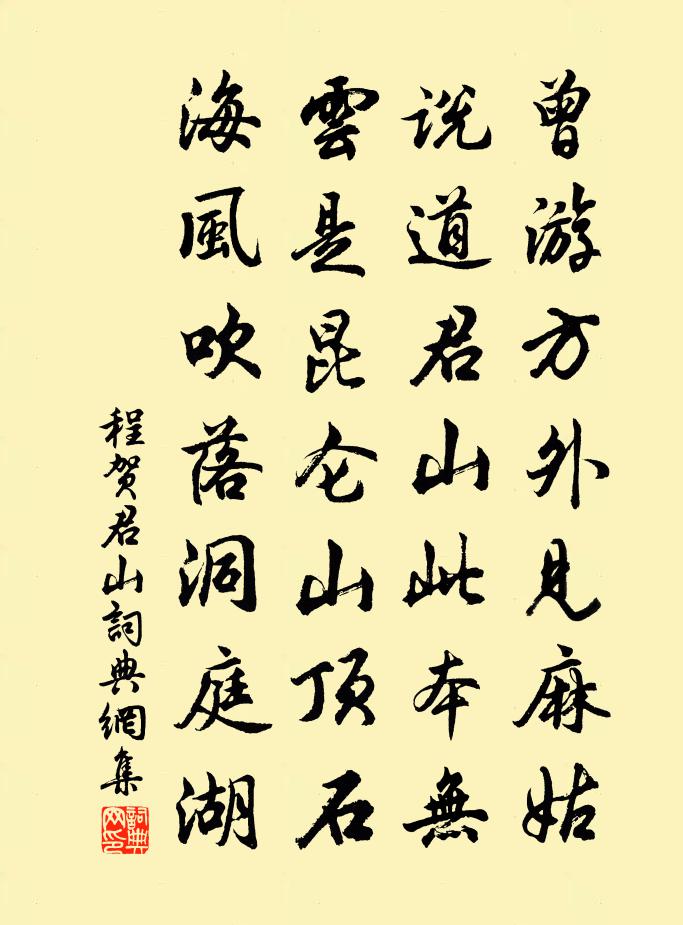 曾游方外見麻姑
説道君山此本無
雲是昆仑山顶石
海風吹落洞庭湖
程贺君山詞典網集
詞典网印